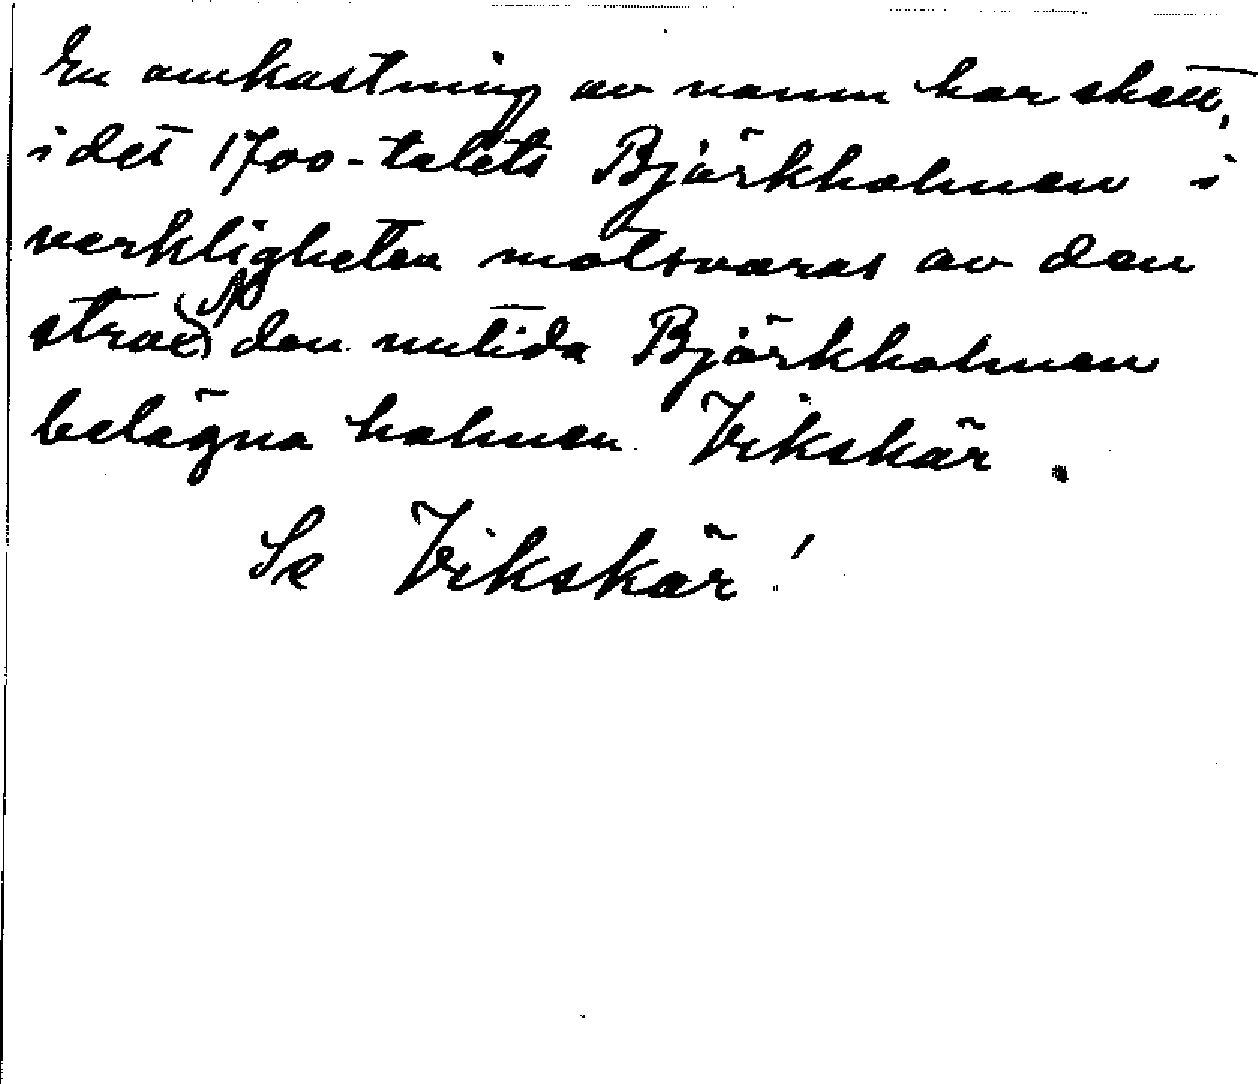 En omkastning av namn har skett,
i det 1700-talets Björkholmen i
verkligheten motsvaras av den
strax N den nutida Björkholmen
belägna holmen Vikskär.
Se Vikskär!